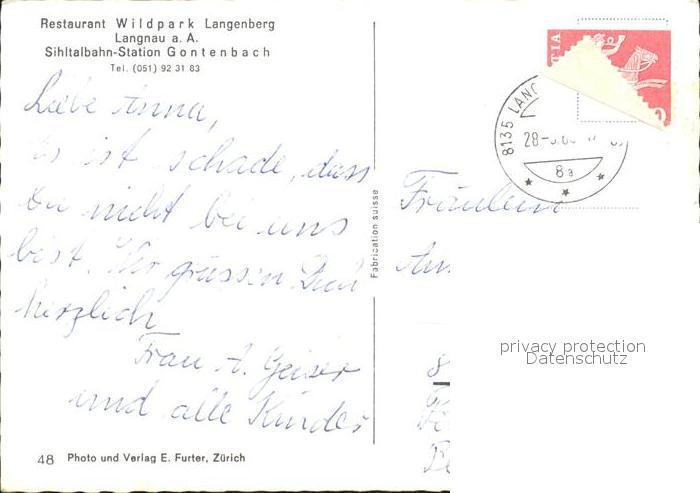 Restaurant Wildpark Langenberg
Langnau a. A.
Sihltalbahn-Station Gontenbach
Tel. (051) 92 31 83
Liebe Anna,
Es ist schade, dass
Du nicht bei uns
bist. Wir grüssen Dich
herzlich
Frau A. Geiser
und alle Kinder
48 Photo und Verlag E. Furter, Zürich
Fabrication suisse
TIA
8135 LANG
28-
8a
Fräulein
An
privacy protection
Datenschutz
8